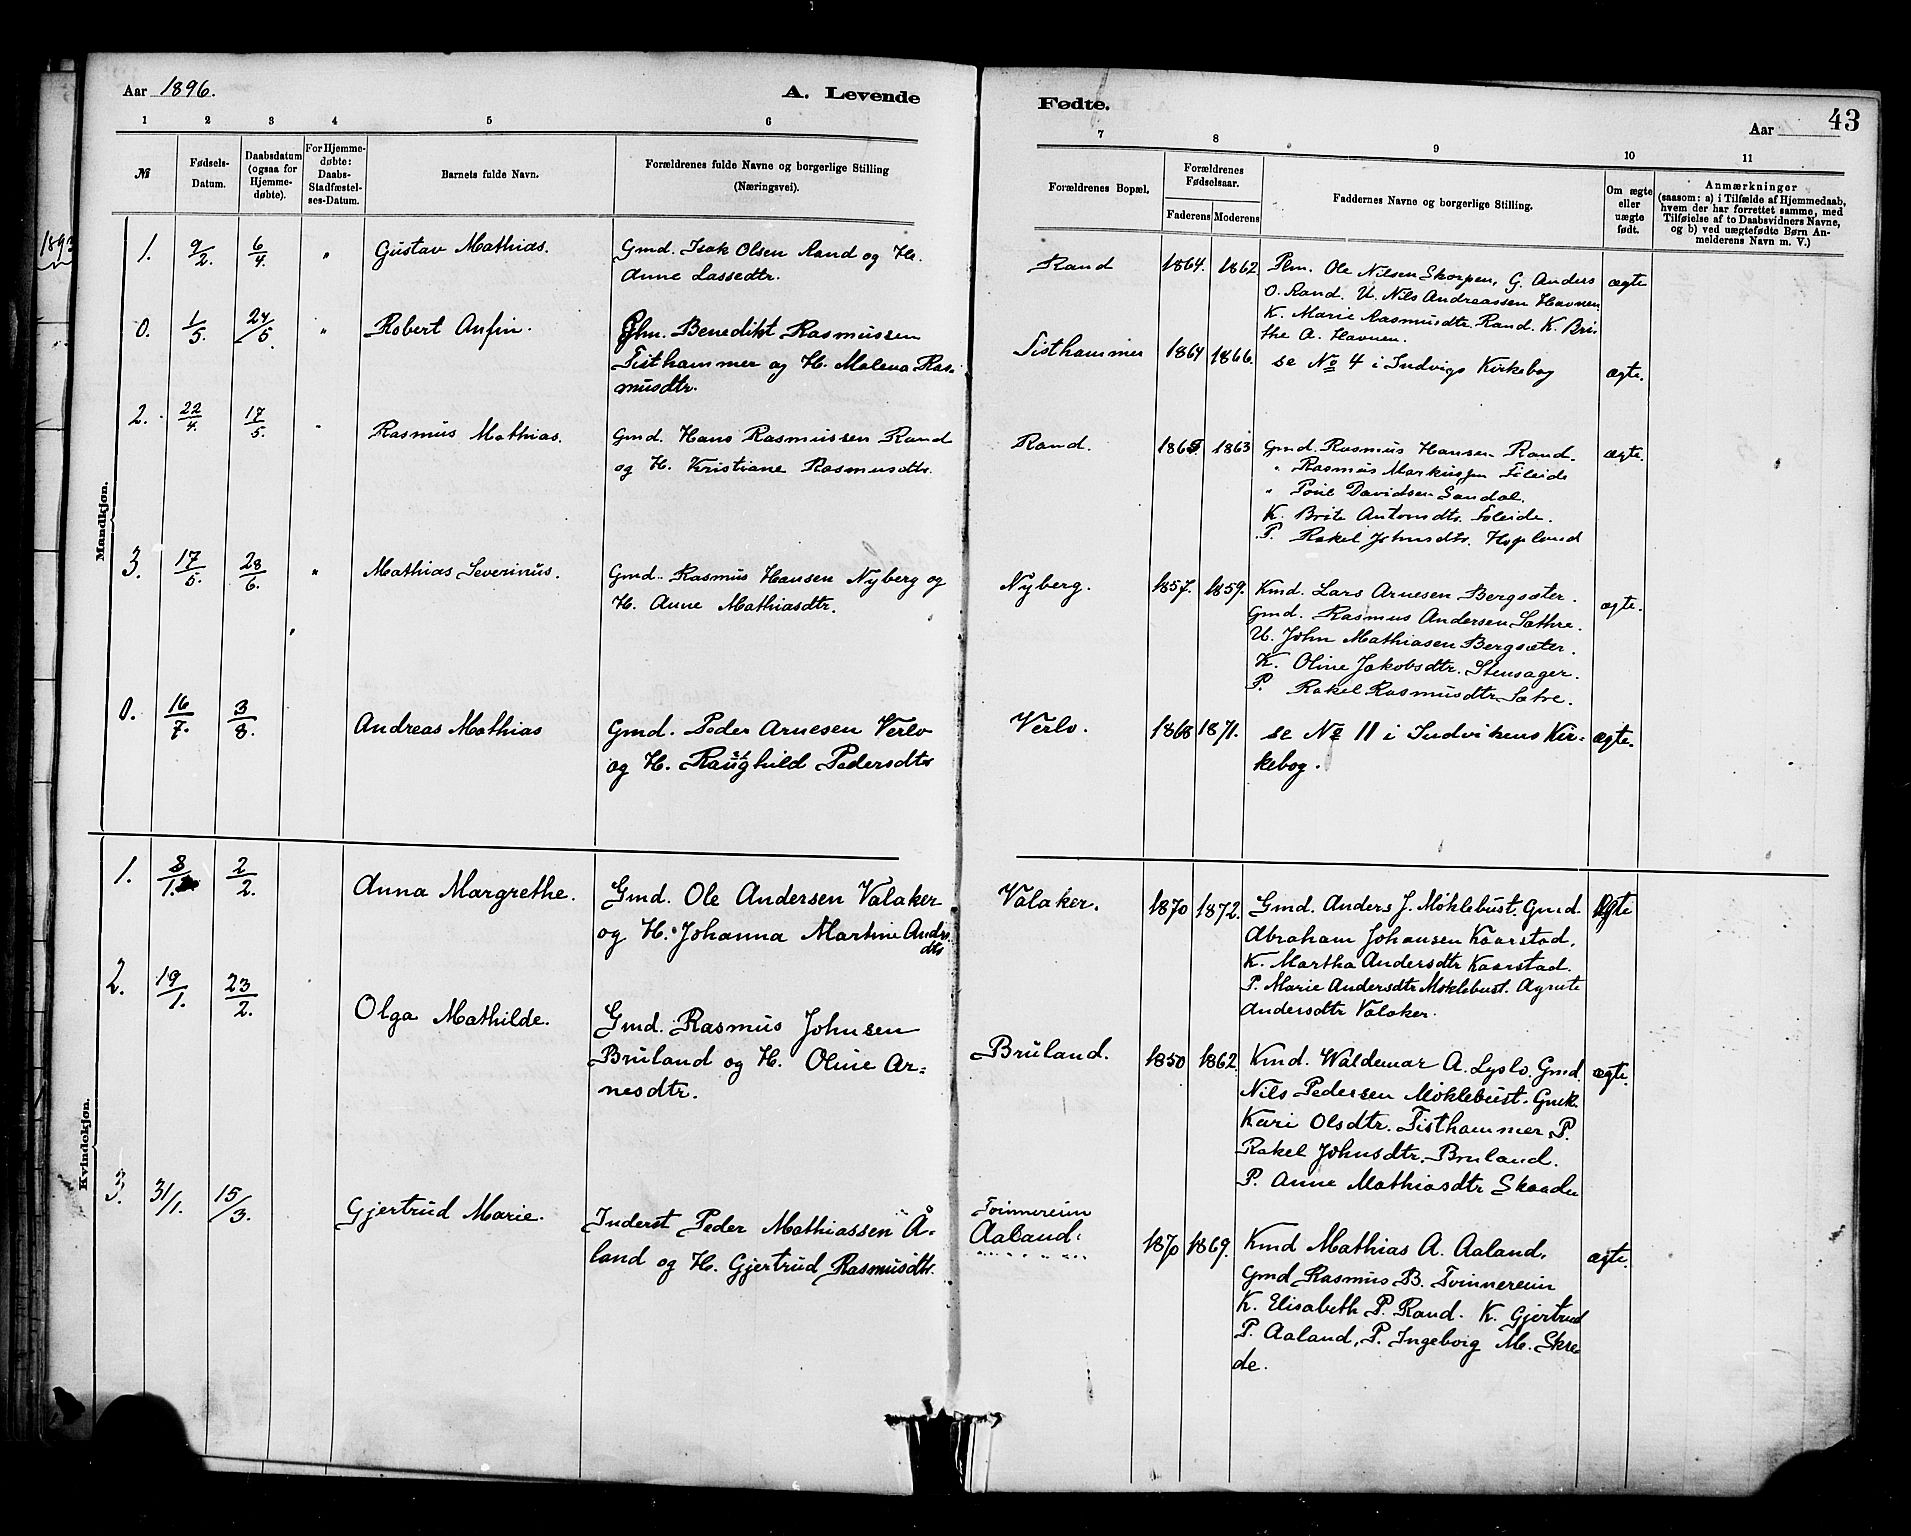 Aar 1896.
A. Levende
Fødte.
Aar
43
1 2 3 4 5 6 7 8 9 10 11
№
Fødsels-
Datum.
Daabsdatum
(ogsaa for
Hjemme-
døbte).
For Hjemme-
døbte:
Daabs-
Stadfæstel-
ses-Datum.
Barnets fulde Navn.
Forældrenes fulde Navne og borgerlige Stilling
(Næringsvei).
Forældrenes Bopæl.
Forældrenes
Fødselsaar.
Faderens
Moderens
Faddernes Navne og borgerlige Stilling.
Om ægte
eller
uægte
født.
Anmærkninger
(saasom: a) i Tilfælde af Hjemmedaab,
hvem der har forrettet samme, med
Tilføielse af to Daabsvidners Navne,
og b) ved uægtefødte Børn An-
melderens Navn m. V.)
1893
Mandkjøn.
1. 9/2. 6/4. " Gustav Mathias.
Gmd. Isak Olsen Rand og H.
Anne Lassedtr.
Rand 1864. 1862
Plm. Ole Nilsen Skorpen, G. Anders
O. Rand. U. Nils Andreassen Havnen
K. Marie Rasmusdtr. Rand. K. Bri-
the A. Havnen.
ægte
0. 1/5. 24/5. " Robert Anfin.
Plm. Benedikt Rasmussen
Tisthammer og H. Malena Ras-
musdtr.
Tisthammer 1864 1866.
se No 4 i Indvigs Kirkebog
ægte.
2. 22/4. 17/5. " Rasmus Mathias.
Gmd. Hans Rasmussen Rand
og H. Kristiane Rasmusdtr.
Rand. 1865 1863
Gmd. Rasmus Hansen Rand.
" Rasmus Markussen Foleide
" Povel Davidsen Sandal.
K. Brite Antonsdtr. Foleide.
P. Rakel Johnsdtr. Hopland
ægte.
3. 17/5. 28/6. " Mathias Severinus.
Gmd. Rasmus Hansen Nyberg og
H. Anne Mathiasdtr.
Nyberg. 1857. 1859.
Kmd. Lars Arnesen Bergsæter.
Gmd. Rasmus Andersen Sæthre.
U. John Mathiasen Bergsæter.
K. Oline Jakobsdtr. Stensager.
P. Rakel Rasmusdtr. Sætre.
ægte.
0. 16/7. 3/8. Andreas Mathias
Gmd. Peder Arnesen Verlo
og H. Raughild Pedersdtr
Verlo. 1868 1871.
se No 11 i Indvikens Kir-
kebog.
ægte.
Kvindekjøn.
1. 8/1. 2/2. Anna Margrethe.
Gmd. Ole Andersen Valaker
og H. Johanna Martine Anders
dtr
Valaker. 1870 1872.
Gmd. Anders J. Møklebust. Gmd.
Abraham Johansen Kaarstad.
K. Martha Andersdtr Kaarstad.
P. Marie Andersdtr Møklebust. Agnete
Andersdtr Valaker.
Ægte
2. 19/1. 23/2. Olga Mathilde.
Gmd. Rasmus Johnsen
Bruland og H. Oline Ar-
nesdtr.
Bruland. 1850 1862.
Kmd. Waldemar A. Lyslo. Gmd.
Nils Pedersen Møklebust. Gmk.
Kari Olsdtr. Tisthammer P.
Rakel Johnsdtr. Bruland.
P. Anne Mathiasdtr Skaaden
ægte.
3. 31/1. 15/3. Gjertrud Marie.
Inderst Peder Mathiassen Å-
land og H. Gjertrud Rasmusdtr.
Tvinnereim
Aaland.
1870 1869.
Kmd Mathias A. Aaland.
Gmd Rasmus B. Tvinnereim
K. Elisabeth P. Rand. K. Gjertrud
P. Aaland, P. Ingeborg M. Skre-
de.
ægte.